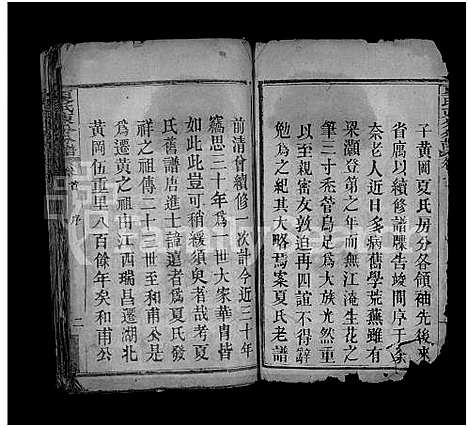 子黄岡夏氏房分各領袖先後來
省腐以續修譜牒告竣問序于余
奈老人近日多病舊學荒蕪雖有
梁灝登第之年而無江淹生花之
筆三寸禿管烏足為大族光然重
以至親密友敦迫再四誼不得辭
勉為之紀其大略焉案夏氏老譜
前清曾續修一次計今近三十年
竊思三十年爲一世大家華胄皆
如此此豈可稍緩須臾者哉考夏
氏舊譜唐進士諱遠者爲夏氏發
祥之祖傳二十一世至和甫公是
爲遷黄之祖由江西瑞昌遷湖北
黄岡伍重里八百餘年矣和甫公
卷首
序
二